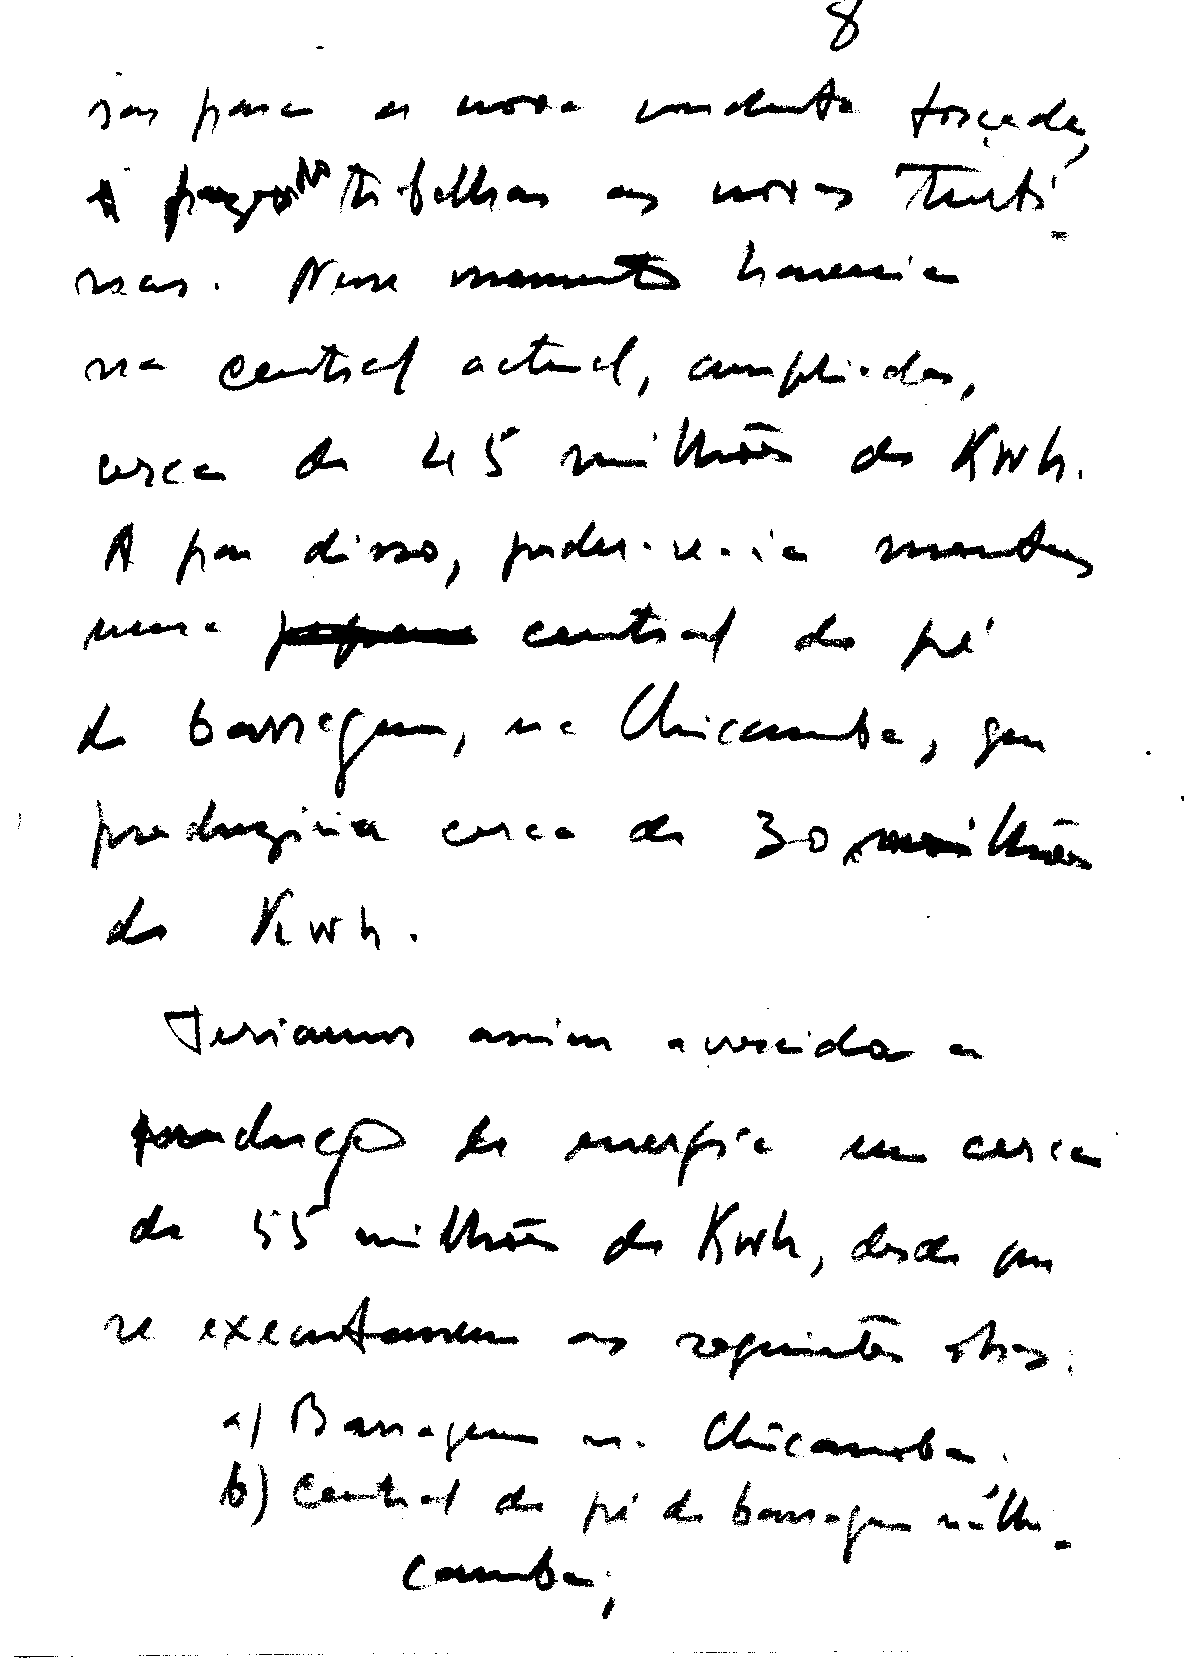 8
sas para a nova conduta forçada,
a trabalhar as novas turbi-
nas. Nesse momento haveria
na central actual, ampliada,
cerca de 45 milhões de Kwh.
A par disso, poder-se-ia montar
uma pequena central de pé
de barragem, na Chicamba, que
produziria cerca de 30 milhões
de Kwh.
Teriamos assim acrescida a
produção de energia em cerca
de 55 milhões de Kwh, desde que
se executassem as seguintes obras:
a) Barragem na Chicamba.
b) Central de pé de barragem na Chi-
camba;